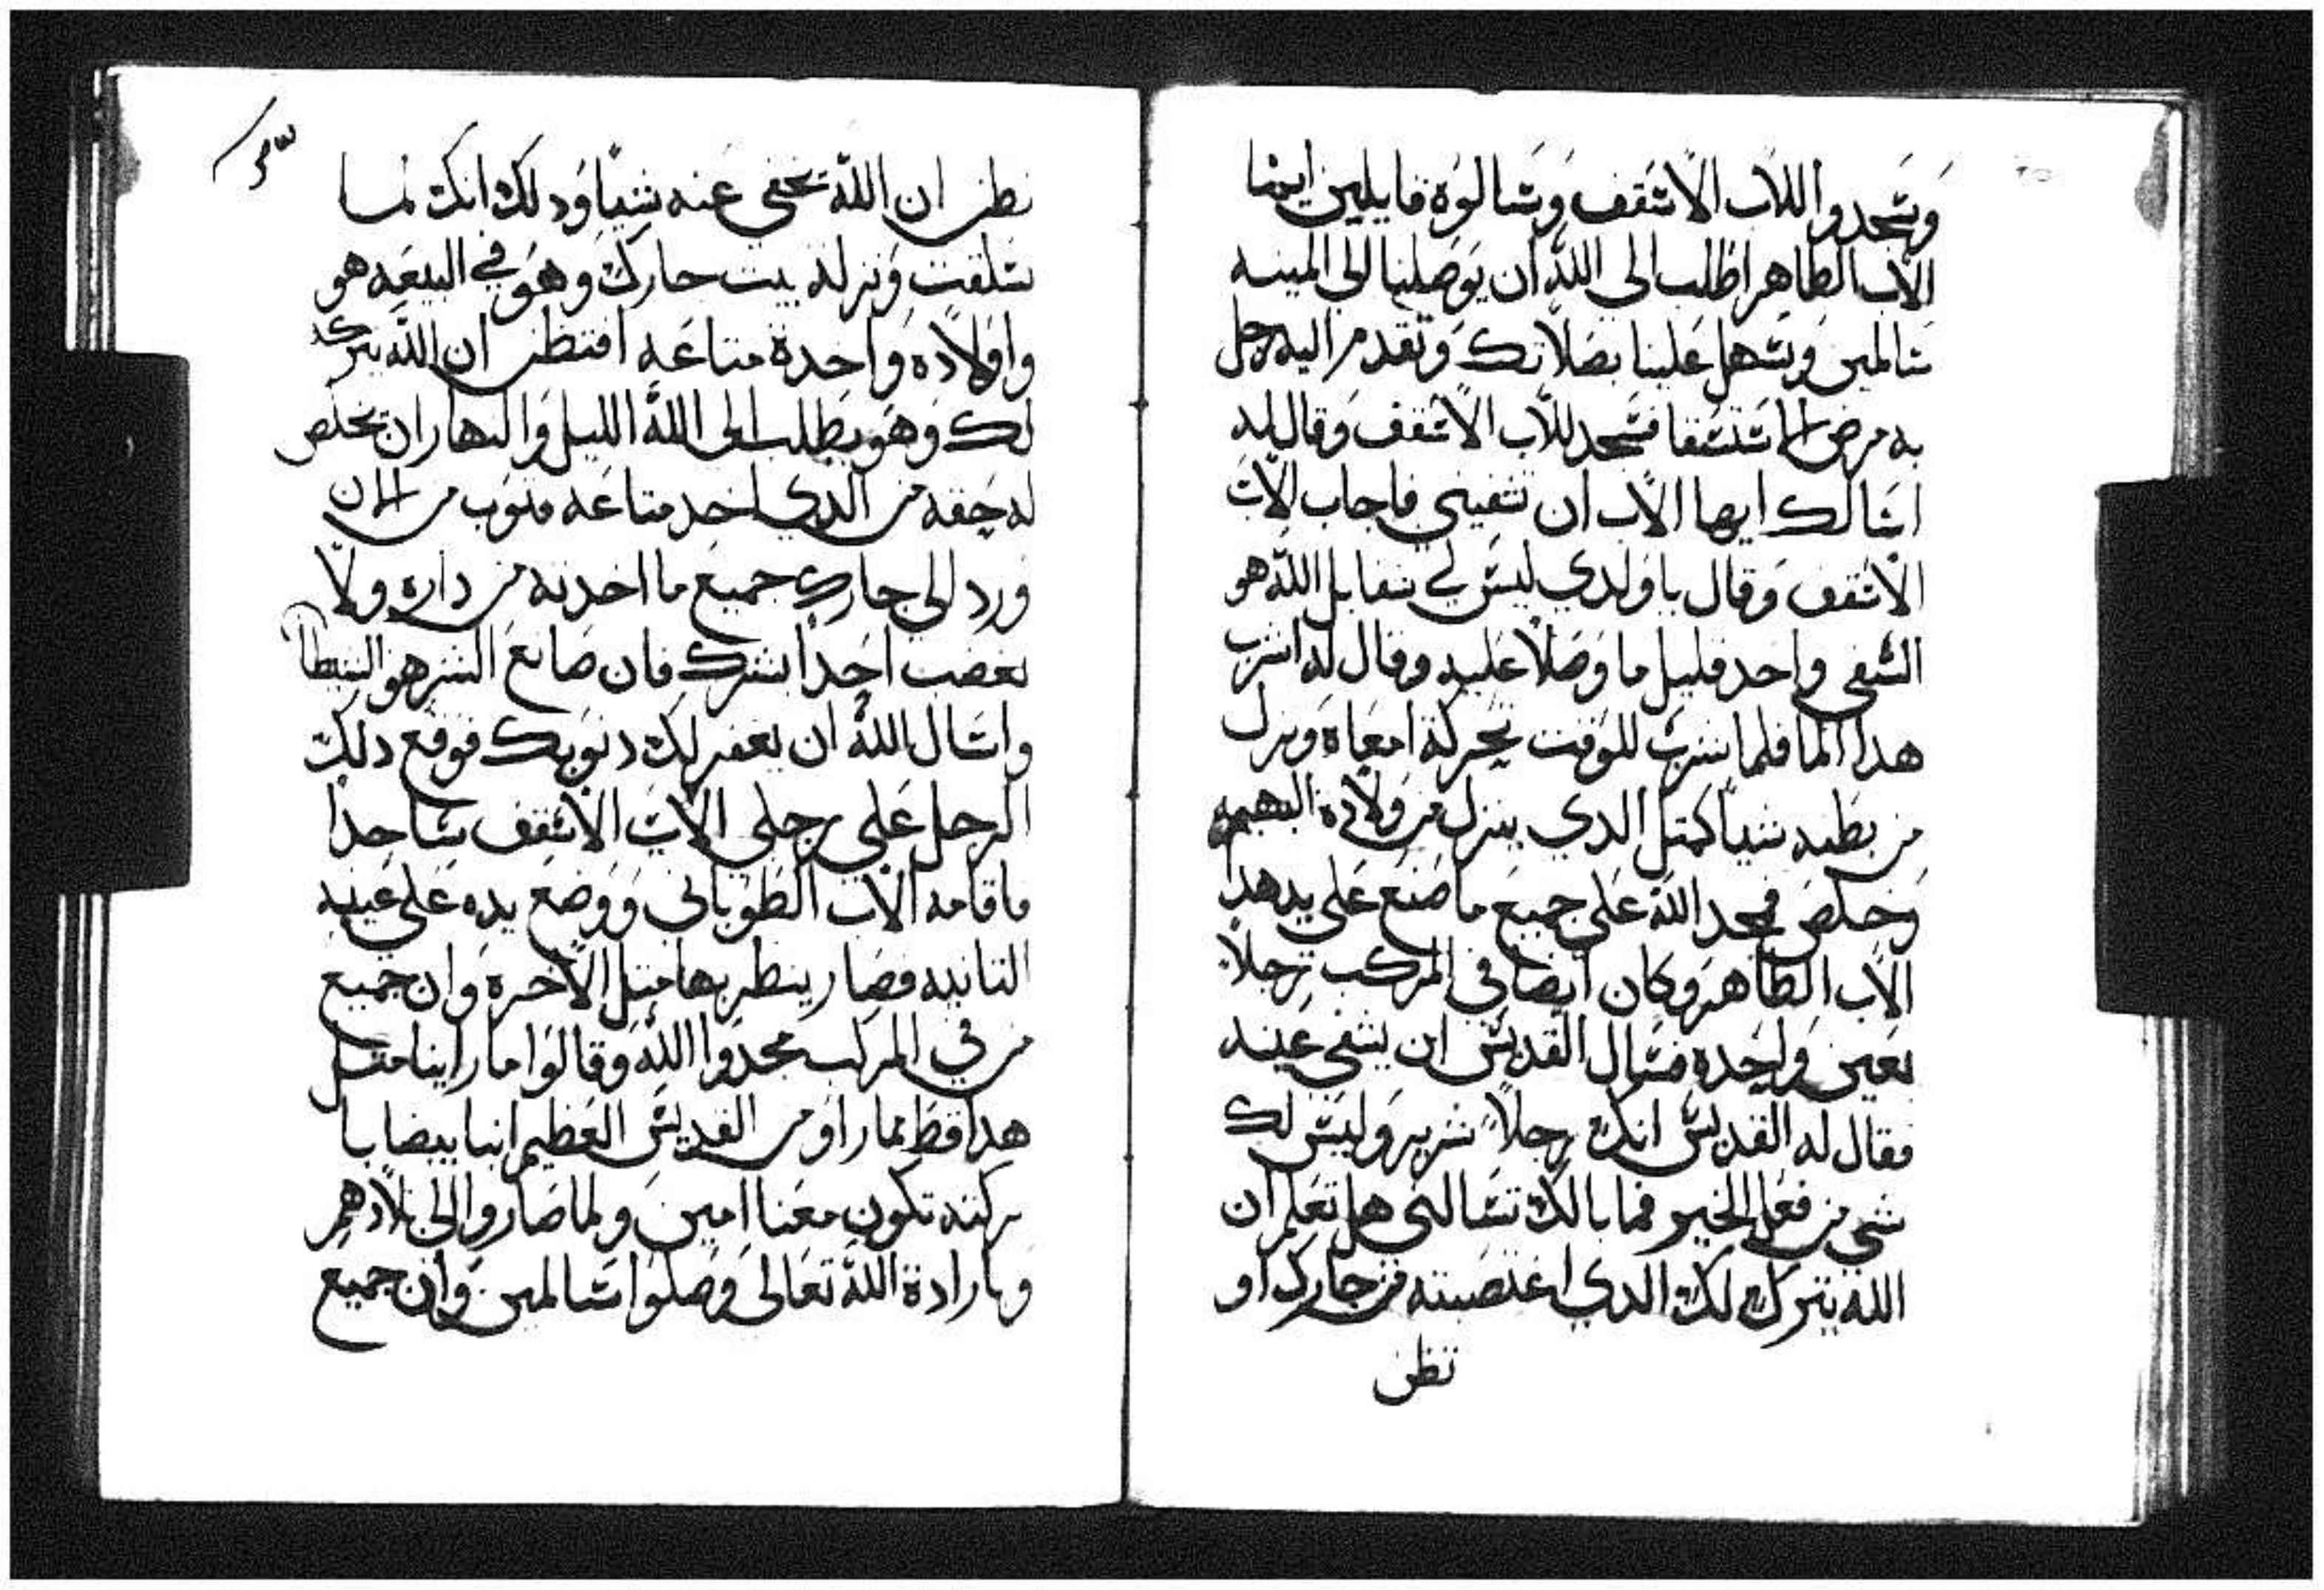 وسجدوا للاب الاسقف وسالوه قايلين ايها
الاب الطاهر اطلب الى الله ان يوصلنا الى المينه
سالمين وتسهل علينا بصلاتك وتقدم اليه رجل
به مرض الاستسقا فسجد للاب الاسقف وقال له
اسالك ايها الاب ان تشفيني فاجاب الاب
الاسقف وقال يا ولدي ليس لي بل الله هو
الشفي واخد قليل ما وصلا عليه وقال له اشرب
هدا الما فلما شرب للوقت تحركة امعاه ونزل
من بطنه شياً كمتل الدي ينزل من ولادة البهيمه
وخلص فمجد الله على جميع ما صنع على يد هدا
الاب الطاهر وكان ايضا في المركب رجلاً
بعين واحده فسال القديس ان يشفي عينه
فقال له القديس انك رجلاً شرير وليس لك
شي من فعل الخير فما بالك تسالني هل تعلم ان
الله يترك لك الدي اغتصبته من جارك او
تظن
تظن ان الله تخفى عنه شياً ودلك انك لما
تسلقت ونزلة بيت جارك وهو في البيعه هو
واولاده واخدة متاعه افتظن ان الله يترك
لك وهو يطلب الى الله الليل والنهار ان يخلص
له حقه من الدي اخد متاعه فتوب من الان
ورد الى جارك جميع ما اخدته من داره ولا
تغضب احداً بشرك فان صانع الشر هو الشيطان
واسال الله ان يغفر لك دنوبك فوقع دلك
الرجل على رجلي الاب الاسقف ساجداً
فاقامه الاب الطوباني ووضع يده على عينه
التانيه فصار ينظر بها متل الاخره وان جميع
من في المركب مجدوا الله وقالوا ما راينا متل
هدا قط لما راو من القديس العظيم انبا بيضابا
بركته تكون معنا امين ولما صاروا الى بلادهم
وبارادة الله تعالى وصلوا سالمين وان جميع